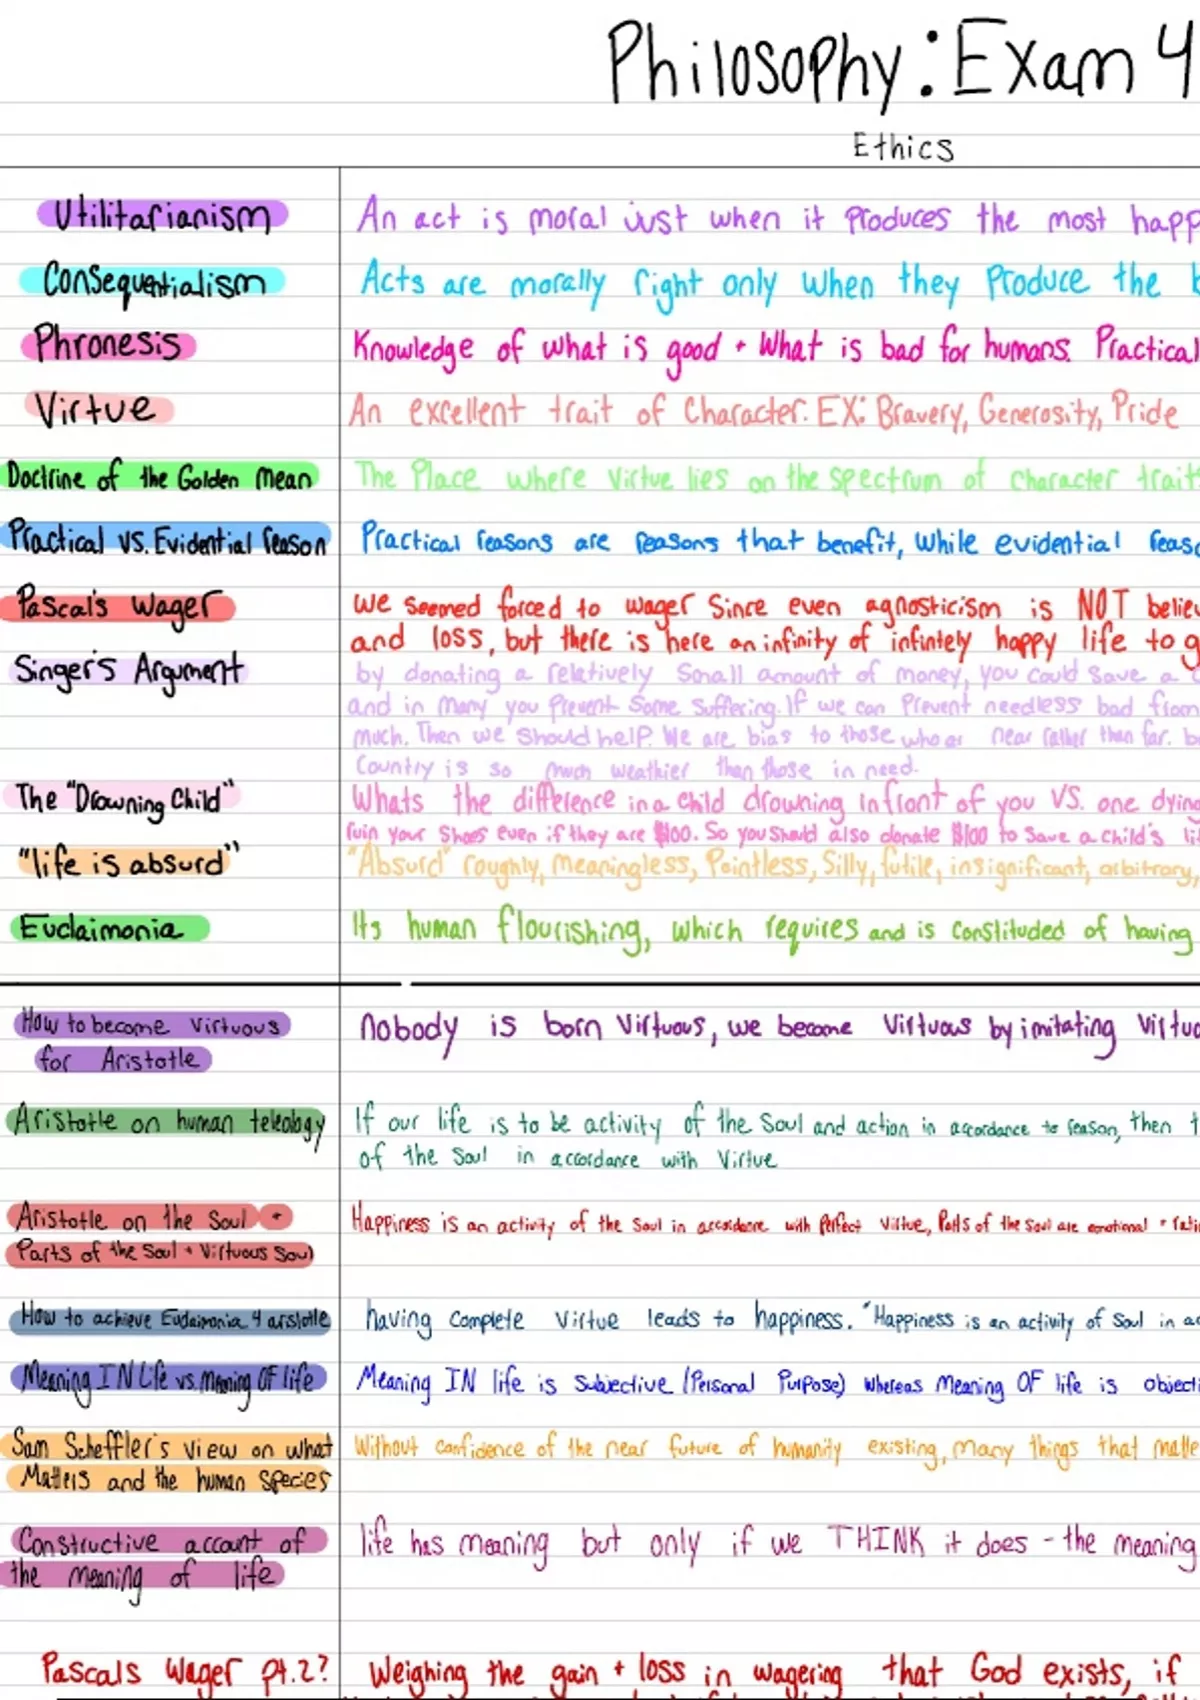 Philosophy: Exam 4
Ethics
Utilitarianism An act is moral just when it produces the most happ
Consequentialism Acts are morally right only when they produce the b
Phronesis Knowledge of what is good + what is bad for humans. Practical
Virtue An excellent trait of character. EX: Bravery, Generosity, Pride
Doctrine of the Golden Mean The Place where virtue lies on the spectrum of character trait
Practical vs. Evidential reason Practical reasons are reasons that benefit, while evidential reaso
Pascal's Wager we seemed forced to wager since even agnosticism is NOT believ
and loss, but there is here an infinity of infintely happy life to g
Singer's Argument by donating a relatively small amount of money, you could save a
and in many you prevent some suffering. If we can prevent needless bad from
much. Then we should help. We are bias to those who are near rather than far. b
Country is so much weathier than those in need.
The "Drowning Child" Whats the difference in a child drowning infront of you VS. one dying
ruin your shoes even if they are $100. So you should also donate $100 to save a child's li
"life is absurd" "Absurd" roughly, meaningless, Pointless, Silly, futile, insignificant, arbitrary,
Eudaimonia Its human flourishing, which requires and is constituded of having
How to become virtuous nobody is born virtuous, we become virtuous by imitating virtuo
for Aristotle
Aristotle on human teleology If our life is to be activity of the Soul and action in accordance to reason, then t
of the soul in accordance with Virtue
Aristotle on the Soul + Happiness is an activity of the soul in accordance with perfect virtue, Parts of the soul are emotional + ratio
Parts of the soul + Virtuous Soul
How to achieve Eudaimonia 4 aristotle having complete virtue leads to happiness. "Happiness is an activity of soul in ac
Meaning IN Life vs. meaning OF life Meaning IN life is subjective (Personal Purpose) whereas meaning OF life is objecti
Sam Scheffler's view on what Without confidence of the near future of humanity existing, many things that matte
Matters and the human species
Constructive account of life has meaning but only if we THINK it does - the meaning
the meaning of life
Pascals Wager pt.2? Weighing the gain + loss in wagering that God exists, if